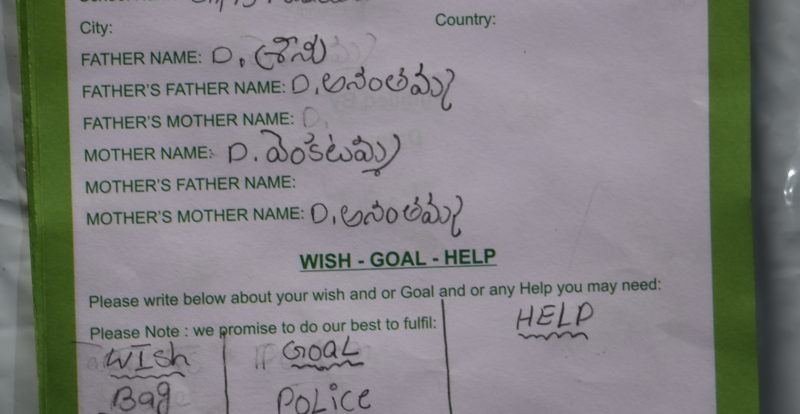 City: Country:
FATHER NAME: D. శ్రీను
FATHER'S FATHER NAME: D. అనంతమ్మ
FATHER'S MOTHER NAME: D.
MOTHER NAME: D. వెంకటమ్మ
MOTHER'S FATHER NAME:
MOTHER'S MOTHER NAME: D. అనంతమ్మ
WISH - GOAL - HELP
Please write below about your wish and or Goal and or any Help you may need:
Please Note : we promise to do our best to fulfil: HELP
WISh GOAL
Bag POLICE